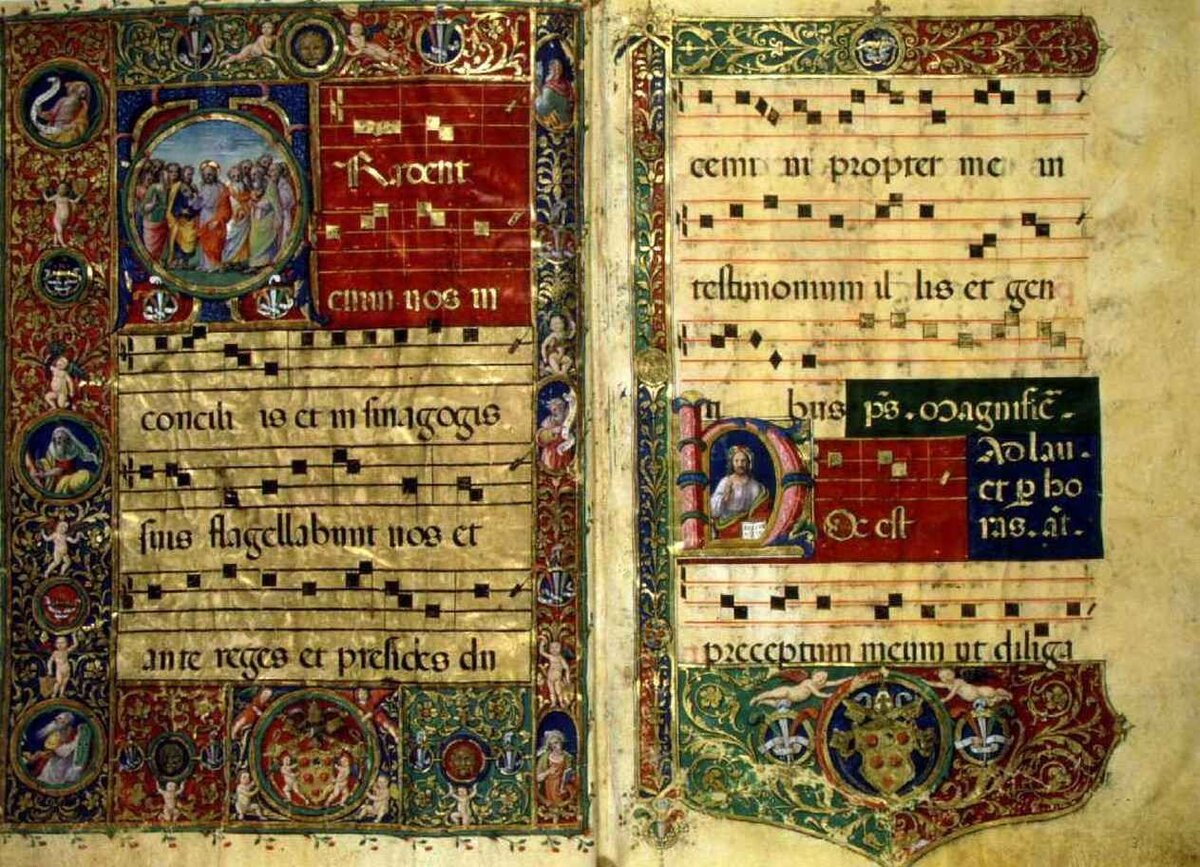 TRadent
enim vos in
concili is et in sinagogis
suis flagellabunt vos et
ante reges et presides du
cemi ni propter me in
testimonium il lis et gen
ti bus p̄s. Magnific̄.
HOc est
Ad lau.
et ꝑ ho
ras. añ.
preceptum meum ut diliga